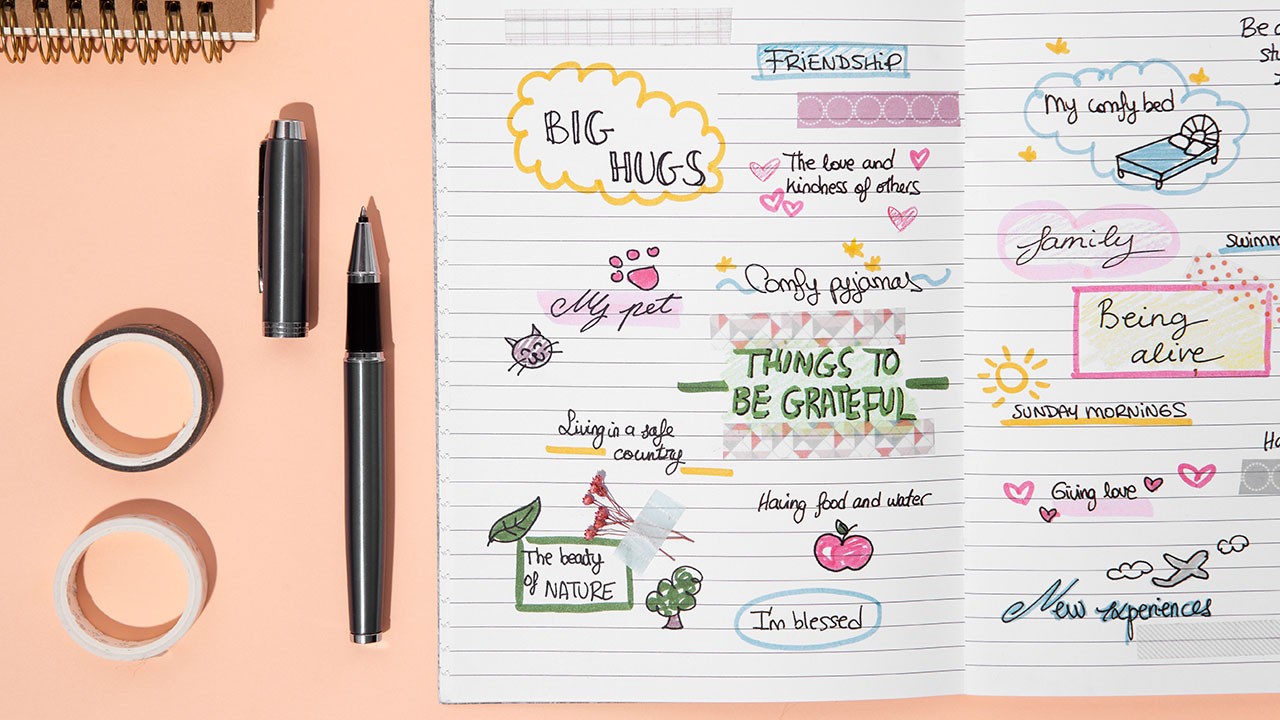 FRIENDSHIP
BIG
HUGS
The love and
kindness of others
My pet
Comfy pyjamas
THINGS TO
BE GRATEFUL
Living in a safe
country
Having food and water
The beaty
of NATURE
I'm blessed
Be
My comfy bed
family
swimm
Being
alive
SUNDAY MORNINGS
Giving love
New experiences